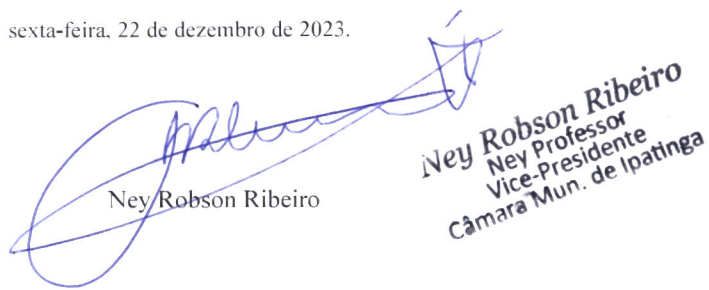 sexta-feira, 22 de dezembro de 2023.
Ney Robson Ribeiro
Ney Robson Ribeiro
Ney Professor
Vice-Presidente
Câmara Mun. de Ipatinga